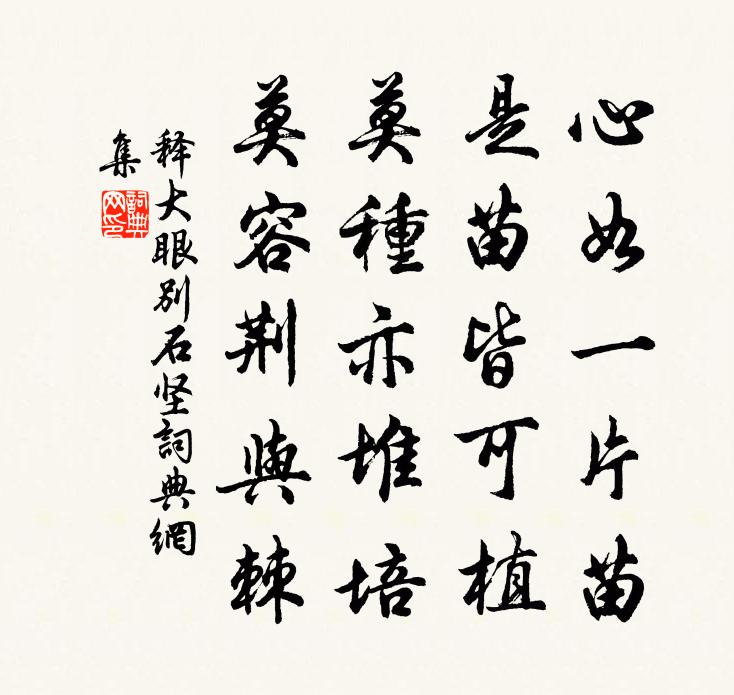 心如一片苗
是苗皆可植
莫種亦堆培
莫容荆與棘
释大眼别石坚詞典網
集
詞典網印